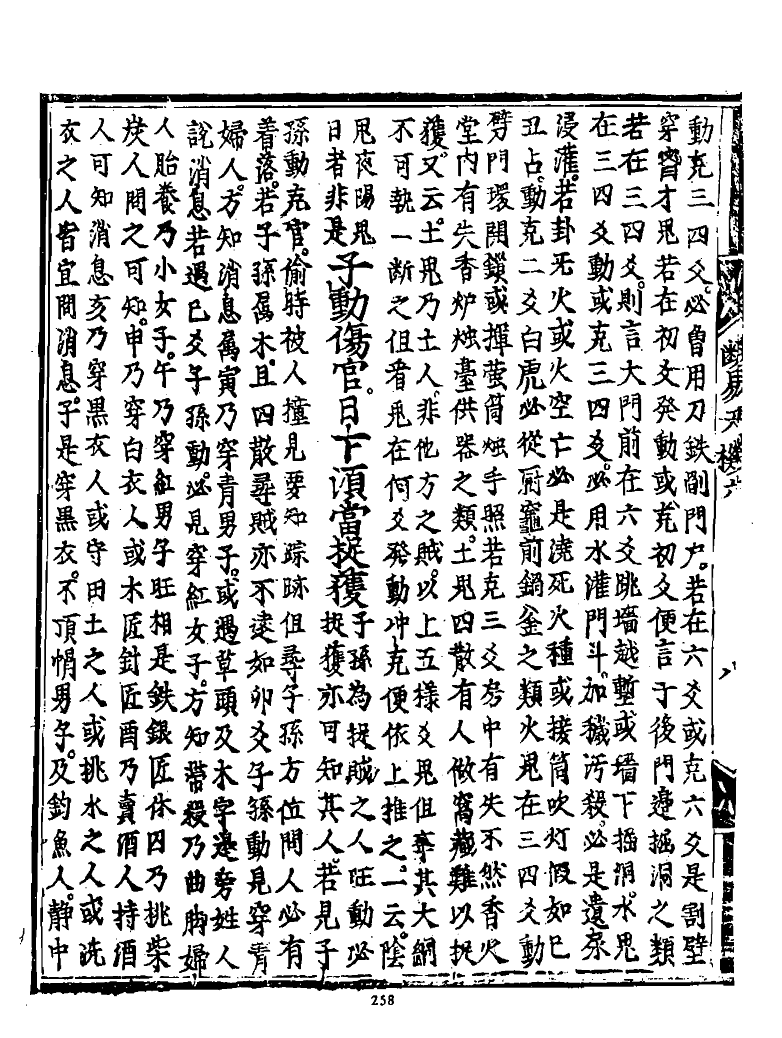 動克三四爻。必曾用刀鉄剮門户。若在六爻或克六爻是割壁
穿窬才鬼若在初爻發動或克初爻便言于後門邊掘洞之類
若在三四爻。則言大門前在六爻跳墻越塹或墻下掘洞。水鬼
在三四爻動或克三四爻。必用水灌門斗。加穢污殺。必是遺尿
浸灌。若卦无火或火空亡必是澆死火種或接筒吹灯假如巳
丑占。動克二爻白虎必從厨竈前鍋釜之類火鬼在三四爻動
劈門環開鎖或揮螢筒烛手照若克三爻房中有失不然香火
堂内有失香炉烛臺供器之類。土鬼四散有人做窩藏難以捉
獲。又云。土鬼乃土人。非他方之賊。以上五樣爻鬼但舉其大綱
不可執一断之但看鬼在何爻發動冲克便依上推之。一云陰
鬼夜陽鬼
日者非是子動傷官。日下須當捉獲子孫為捉賊之人旺動必
捉獲亦可知其人。若見子
孫動克官。偷時被人撞見要知踪跡但尋子孫方位問人必有
着落。若子孫属木。且四散尋賊亦不逮如卯爻子孫動見穿青
婦人。方知消息属寅乃穿青男子。或遇草頭及木字邊旁姓人
說消息若遇巳爻子孫動。必見穿紅女子。方知帶殺乃曲脚婦
人胎養乃小女子。午乃穿紅男子旺相是鉄銀匠休囚乃挑柴
炭人問之可知。申乃穿白衣人或木匠針匠酉乃賣酒人持酒
人可知消息亥乃穿黒衣人或守田土之人或挑水之人或洗
衣之人皆宜問消息。子是穿黒衣。不頂帽男子。及釣魚人。静中
断易天機六
八
258